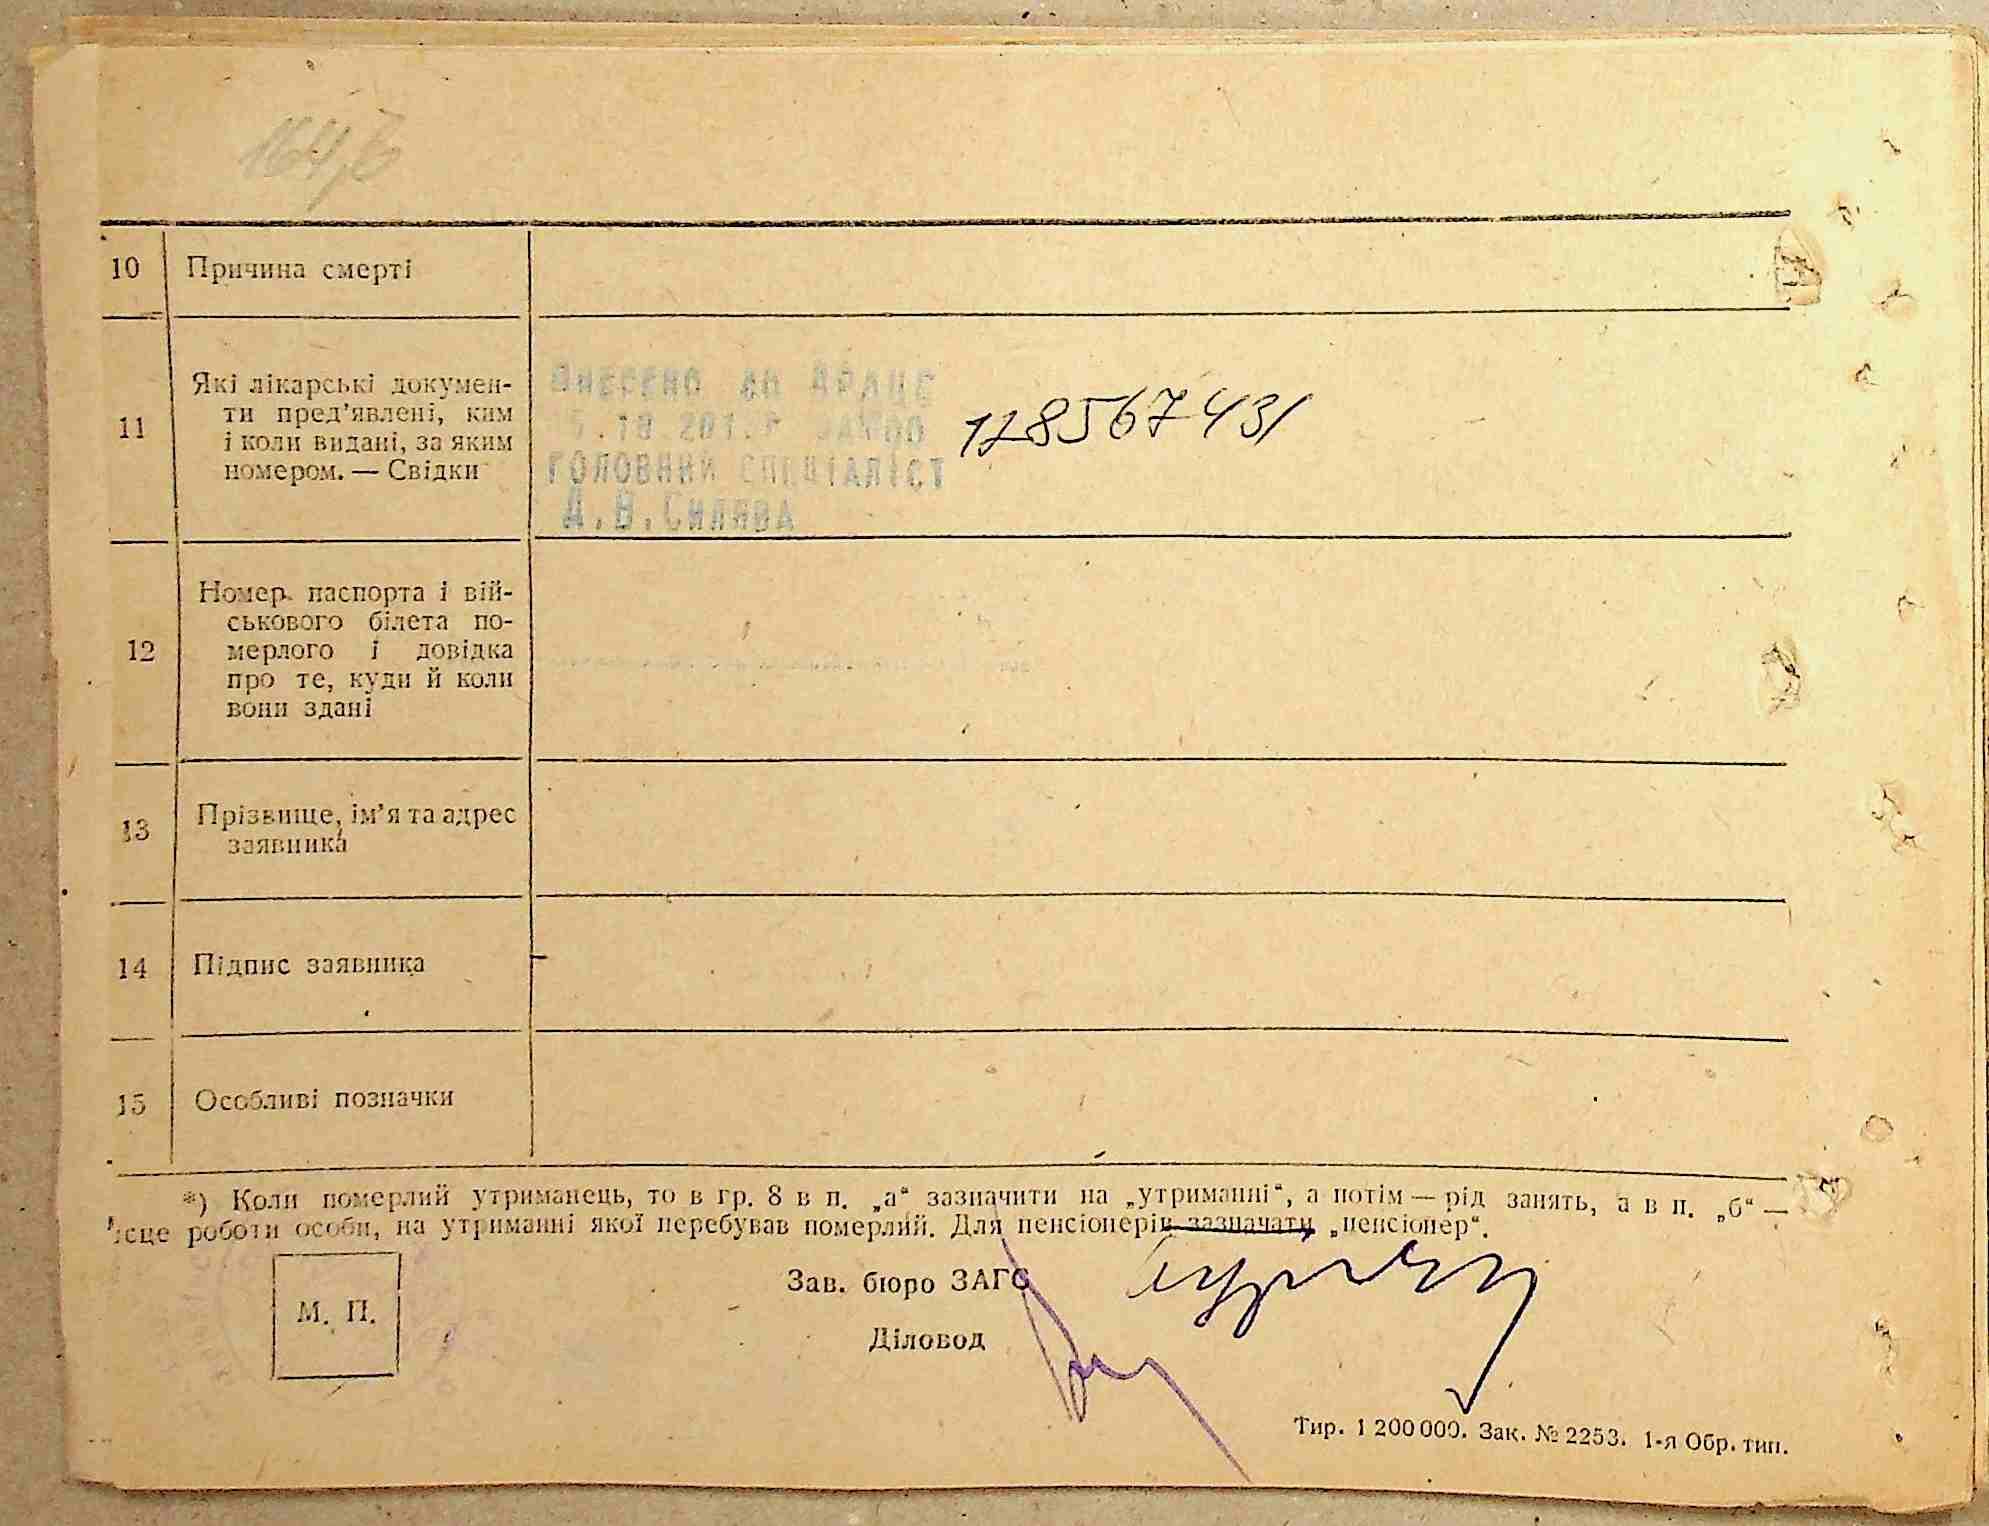 10 Причина смерті
11 Які лікарські докумен-
ти пред'явлені, ким
і коли видані, за яким
номером. — Свідки
ВНЕСЕНО ДО ДРАЦС
ГОЛОВНИЙ СПЕЦІАЛІСТ
Д.В.Силява
128567431
12 Номер паспорта і вій-
ськового білета по-
мерлого і довідка
про те, куди й коли
вони здані
13 Прізвище, ім'я та адрес
заявника
14 Підпис заявника
15 Особливі позначки
*) Коли померлий утриманець, то в гр. 8 в п. „а“ зазначити на „утриманні“, а потім — рід занять, а в п. „б“ —
ісце роботи особи, на утриманні якої перебував померлий. Для пенсіонерів зазначати „пенсіонер“.
М. П.
Зав. бюро ЗАГС
Діловод
Тир. 1 200 000. Зак. № 2253. 1-я Обр. тип.